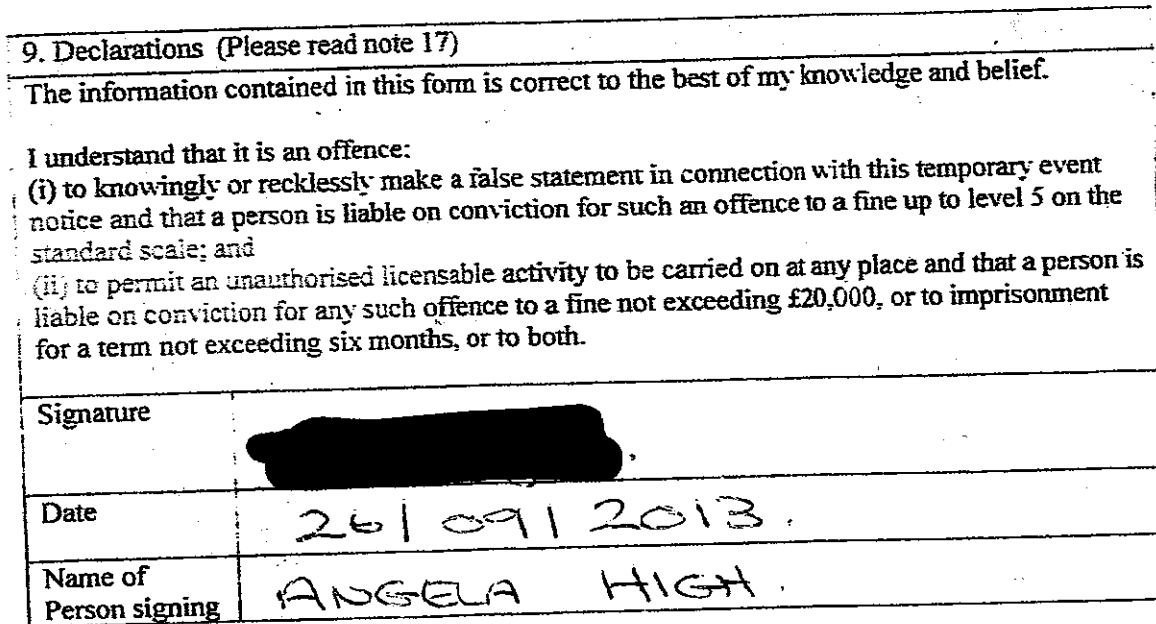 9. Declarations (Please read note 17)
The information contained in this form is correct to the best of my knowledge and belief.
I understand that it is an offence:
(i) to knowingly or recklessly make a false statement in connection with this temporary event
notice and that a person is liable on conviction for such an offence to a fine up to level 5 on the
standard scale; and
(ii) to permit an unauthorised licensable activity to be carried on at any place and that a person is
liable on conviction for any such offence to a fine not exceeding £20,000, or to imprisonment
for a term not exceeding six months, or to both.
Signature
Date 26/09/2013.
Name of
Person signing ANGELA HIGH.